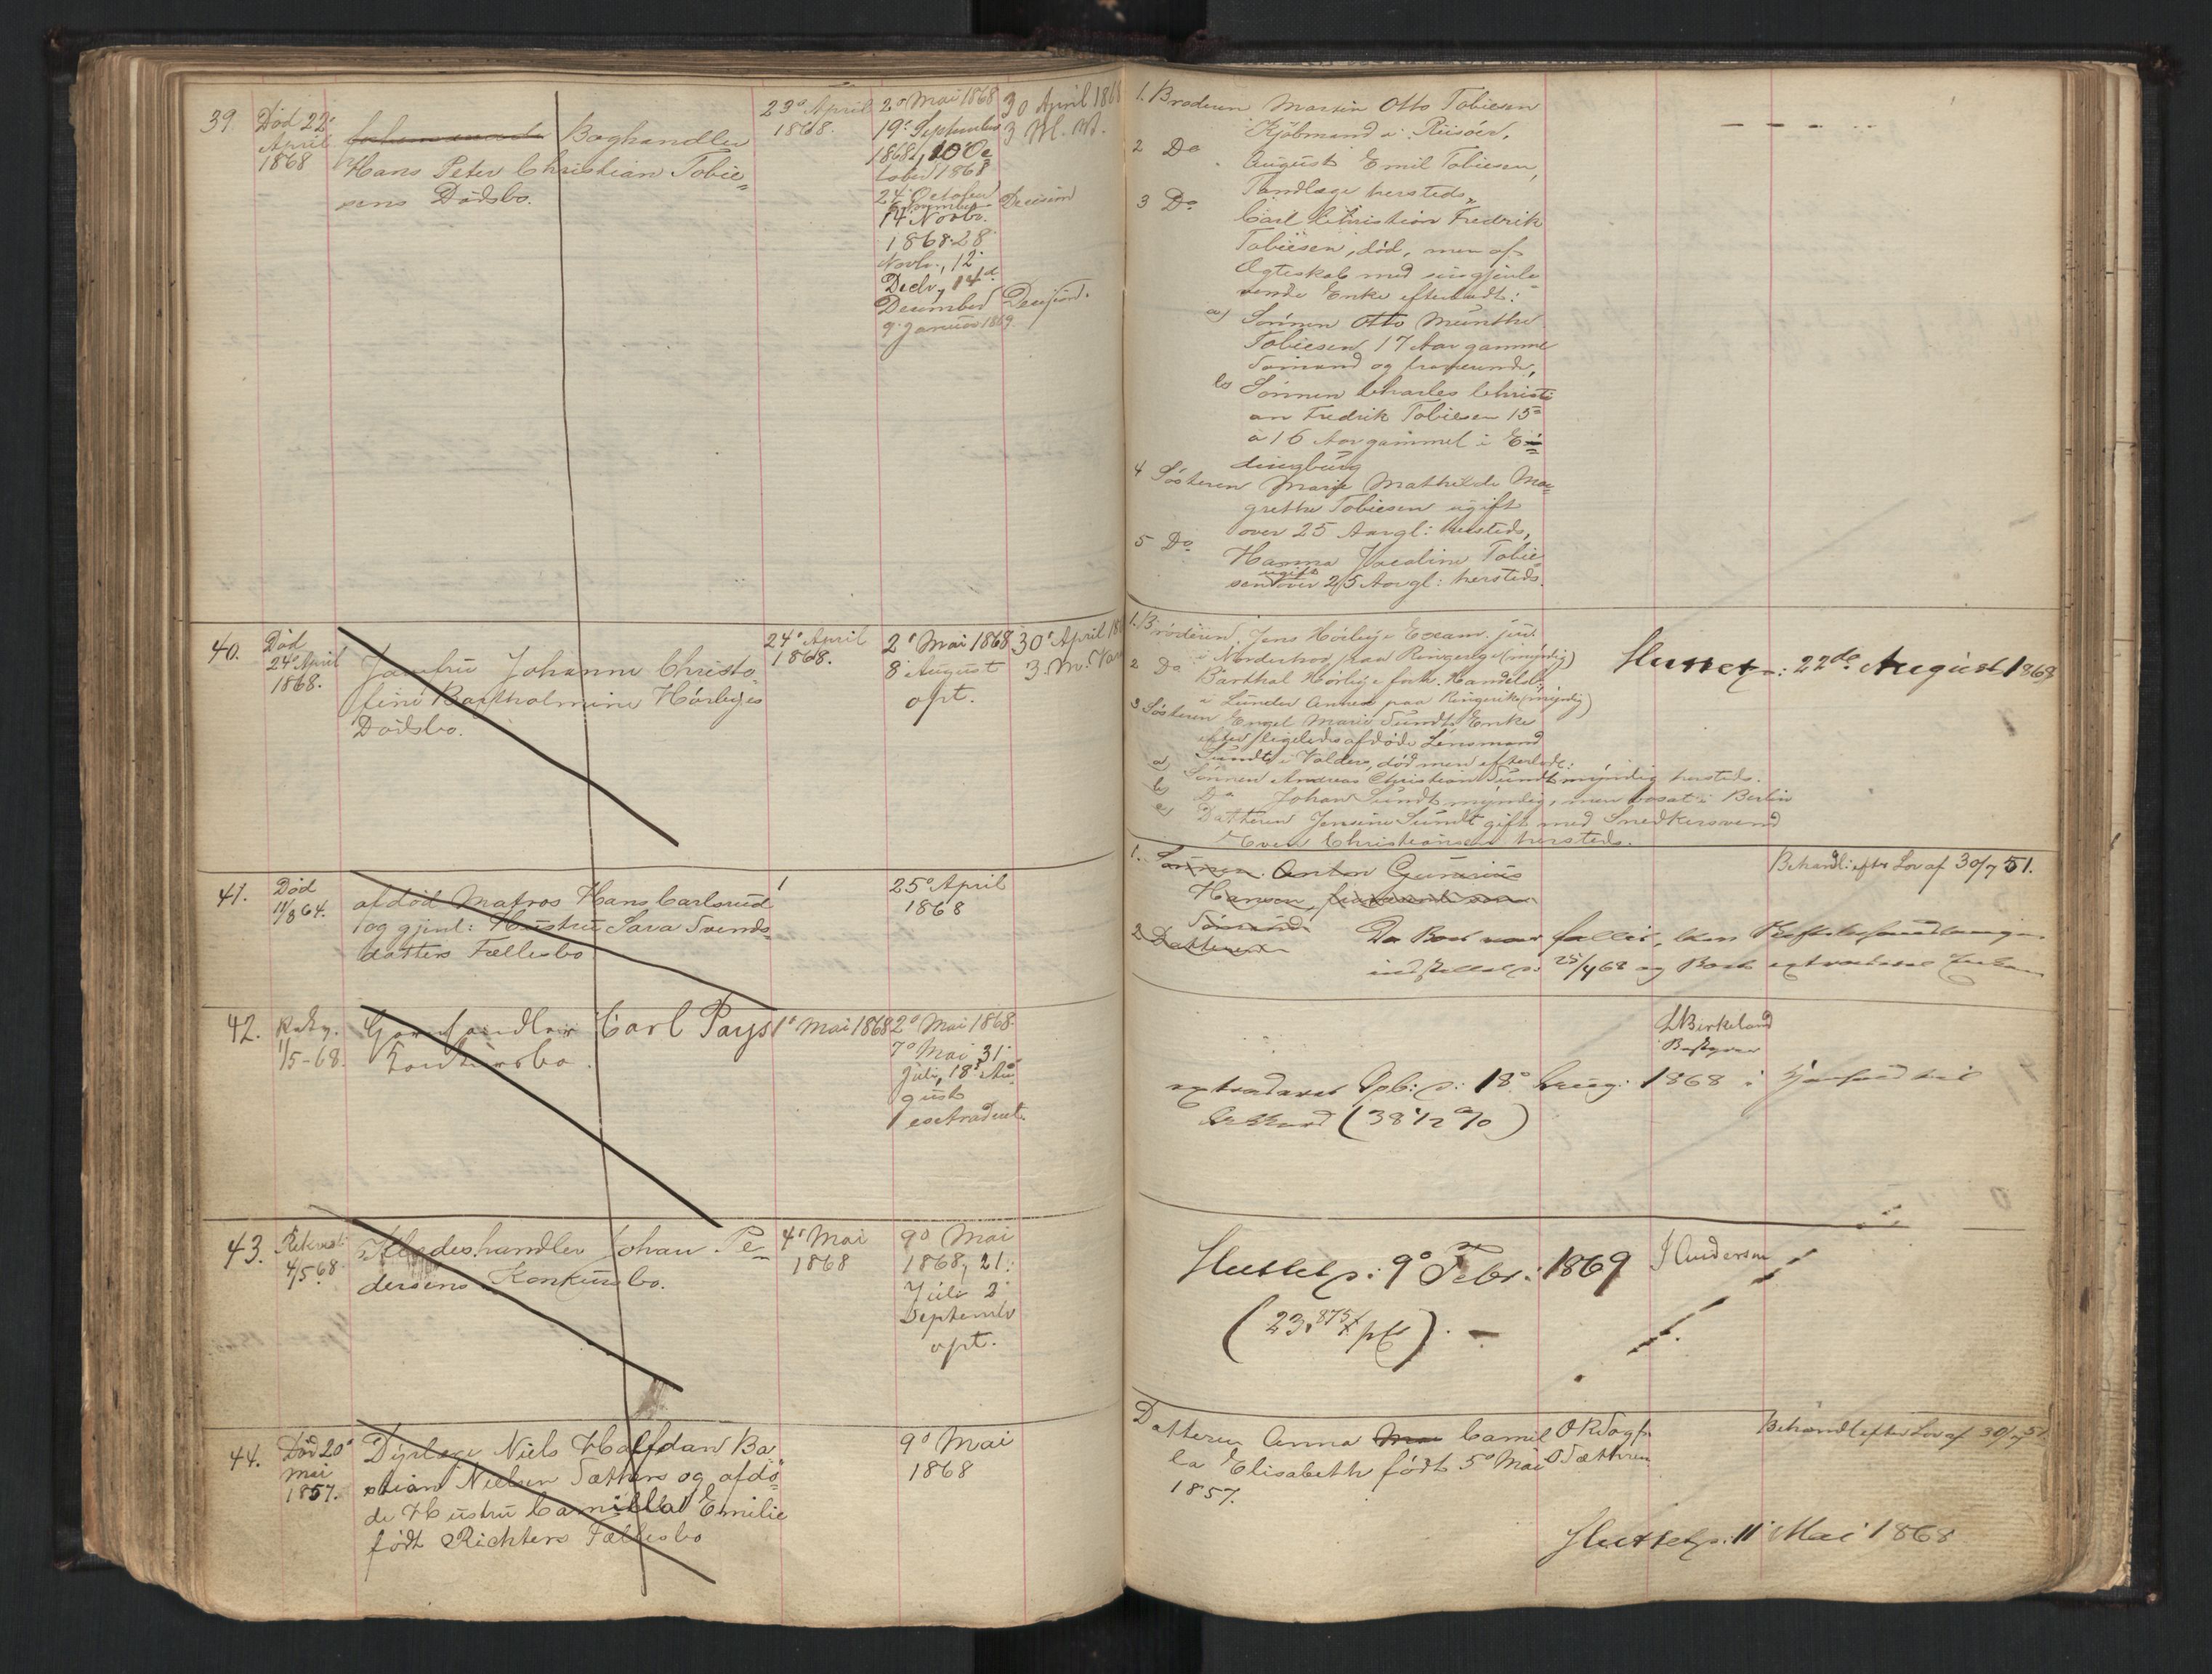 39.
Død 22'
April
1868
Boghandler
Hans Peter Christian Tobie-
sens Dødsbo.
23° April
1868.
2° Mai 1868
19' September
1868, 10' Oc
tober 1868
24' October
14' Novbr.
1868. 28'
Novbr., 12'
Decbr, 14d
December
9' Januar 1869
30 April 1868
3 M. V.
Decision
Decision.
1. Broderen Martin Otto Tobiesen
Kjöbmand i Riisöer,
2 Do August Emil Tobiesen,
Tandlæge hersteds,
3 Do Carl Christian Fredrik
Tobiesen, död, men af
Ægteskab med sin gjenle-
vende Enke efterladt:
a) Sönnen Otto Münthe
Tobiesen 17 Aar gammel
Sömand og fraværende,
b) Sönnen Charles Christi
an Fredrik Tobiesen 15
a 16 Aar gammel i E-
dingburg
4 Sösteren Marie Mathilde Mar-
grethe Tobiesen ugift
over 25 Aar gl: hersteds,
5 Do Hanna Jocaline Tobie-
sen ugift over 25 Aar gl: hersteds.
40.
Død
24° April
1868.
Jomfru Johanne Christo-
fine Bartholmine Hörbyes
Dødsbo.
24° April
1868.
2' Mai 1868
8' August
opt.
30' April 18
3. M. Var
1. Broderen, Jens Hörbye Exam. jur.
i Norderhov paa Ringerige (myndig)
2 Do Barthol Hörbye forh. Handelsb.
i Lunder Annex paa Ringerike (myndig)
3 Sösteren Engel Marie Sundt, Enke
efter ligeledes afdöde Lensmand
Sundt i Valders, död men efterladt:
a) Sönnen Andreas Christian Sundt myndig hersteds.
b) Do Johan Sundt myndig, men bosat i Berlin
c) Datteren Jensine Sundt gift med Snedkersvend
Even Christiansen hersteds.
Sluttet p: 22de August 1868
41.
Død
11/8 64.
afdød Matros Hans Carlsrud
og gjenl: Hustru Sara Svends-
datters Fællesbo
25° April
1868
1. Sönnen Anton Gunerius
Hansen, fraværende som
Sömand
2 Datteren
Behandl: efter Lov af 30/7 51.
Da Boet var fallit, blev Skiftebehandlingen
indstillet p: 25/4 68 og Boet extraderet Enken
42.
Rekv.
1/5-68.
Garnhandler Carl Pays
Konkursbo.
1° Mai 1868
2° Mai 1868.
7° Mai, 31'
Juli, 18' Au-
gust
extraderet
L Birkeland
Bestyrer
extraderet Opb: p: 18° Aug: 1868 i Henhold til
Akkord (38 1/2 %)
43.
Rekvis
4/5 68.
Klædeshandler Johan Pe-
dersens Konkursbo.
4' Mai
1868
9° Mai
1868, 21'
Juli 2'
Septembr
opt.
Sluttet p: 9° Febr: 1869
J Andersen
44.
Død 20'
Mai
1857.
Dyrlæge Niels Halfdan Ba
stian Nielsen Sæthers og afdö-
de Hustru Camilla Emilie
født Richters Fællesbo
9° Mai
1868
Datteren Anna Camil
la Elisabeth født 5° Mai
1857.
Behandl efter Lov af 30/7 51
Sluttet p: 11' Mai 1868